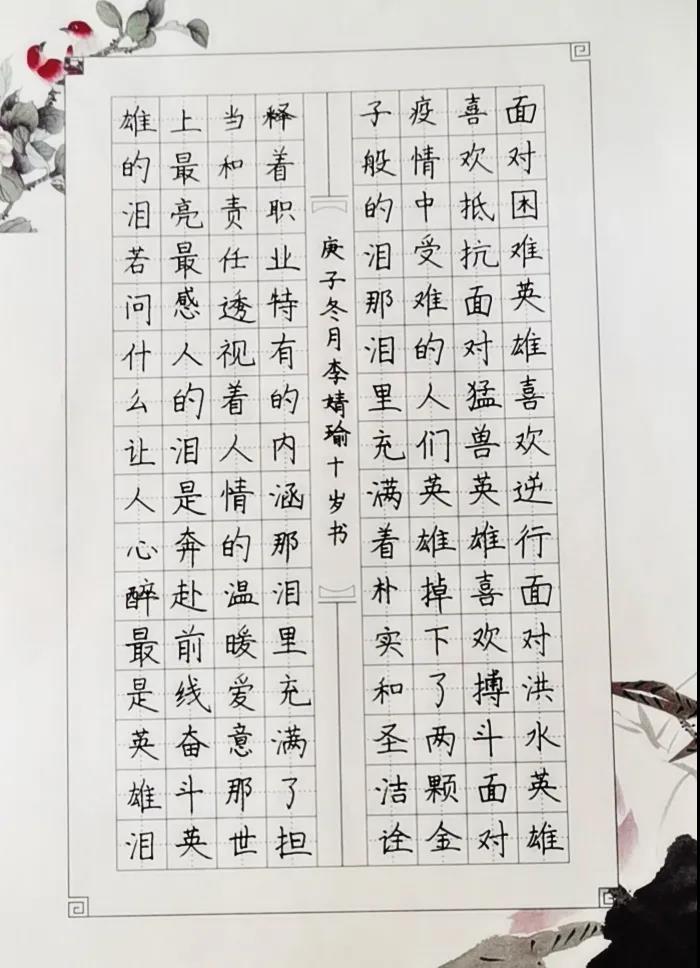 面对困难英雄喜欢逆行面对洪水英雄
喜欢抵抗面对猛兽英雄喜欢搏斗面对
疫情中受难的人们英雄掉下了两颗金
子般的泪那泪里充满着朴实和圣洁诠
庚子冬月李婧瑜十岁书
释着职业特有的内涵那泪里充满了担
当和责任透视着人情的温暖爱意那世
上最亮最感人的泪是奔赴前线奋斗英
雄的泪若问什么让人心醉最是英雄泪